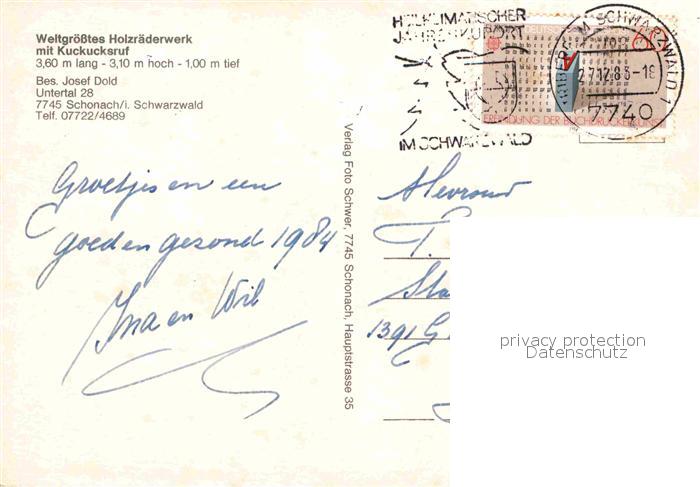 Weltgrößtes Holzräderwerk
mit Kuckucksruf
3,60 m lang - 3,10 m hoch - 1,00 m tief
Bes. Josef Dold
Untertal 28
7745 Schonach/i. Schwarzwald
Telf. 07722/4689
Groetjes en een
goed en gezond 1984
Ina en Wil
Verlag Foto Schwer, 7745 Schonach, Hauptstrasse 35
HEILKLIMATISCHER
JAHRESKURORT
IM SCHWARZWALD
IM SCHWARZWALD 1
27.12.83-18
7740
ERFINDUNG DER BUCHDRUCKERKUNST
Mevrouw
T.
Sta
1391 G
privacy protection
Datenschutz